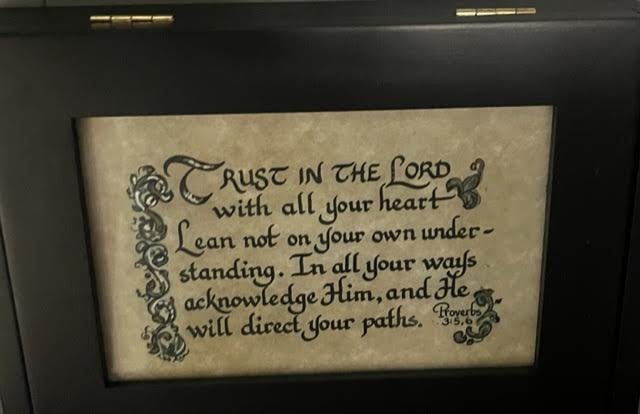 Trust in the Lord
with all your heart
Lean not on your own under-
standing. In all your ways
acknowledge Him, and He
will direct your paths.
Proverbs
3:5,6